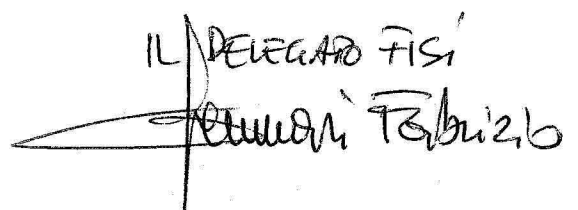 IL DELEGATO FISI
Fabrizio